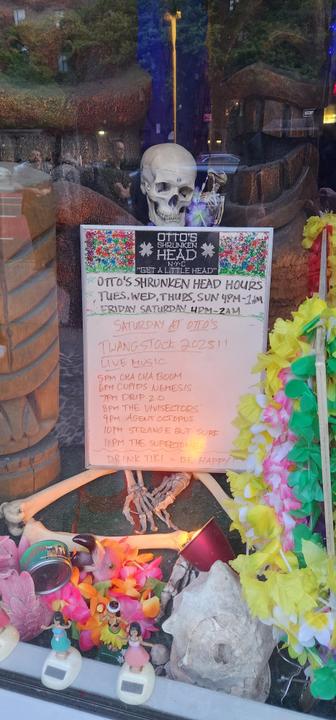 OTTO'S
SHRUNKEN
HEAD
N·Y·C
"GET A LITTLE HEAD"
OTTO'S SHRUNKEN HEAD HOURS
TUES, WED, THURS, SUN 4PM-1AM
FRIDAY SATURDAY 4PM-2AM
SATURDAY AT OTTO'S
TWANGSTOCK 2025!!
LIVE MUSIC
5PM CHA CHA BOOM
6PM CUPIDS NEMESIS
7PM DRIP 2.0
8PM THE VIVISECTORS
9PM AGENT OCTOPUS
10PM STRANGE BUT SURF
11PM THE
DRINK TIKI - BE HAPPY